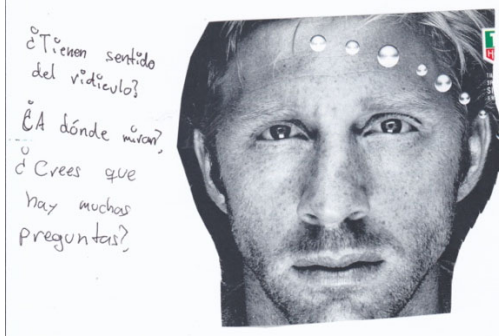 ¿Tienen sentido
del ridículo?
¿A dónde miran?
¿Crees que
hay muchas
preguntas?